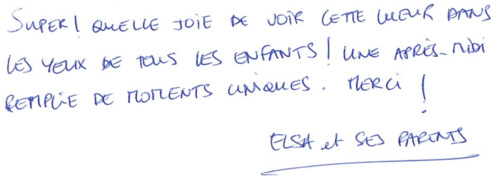 SUPER! QUELLE JOIE DE VOIR CETTE LUEUR DANS
LES YEUX DE TOUS LES ENFANTS! UNE APRÈS-MIDI
REMPLIE DE MOMENTS UNIQUES. MERCI!
ELSA et SES PARENTS